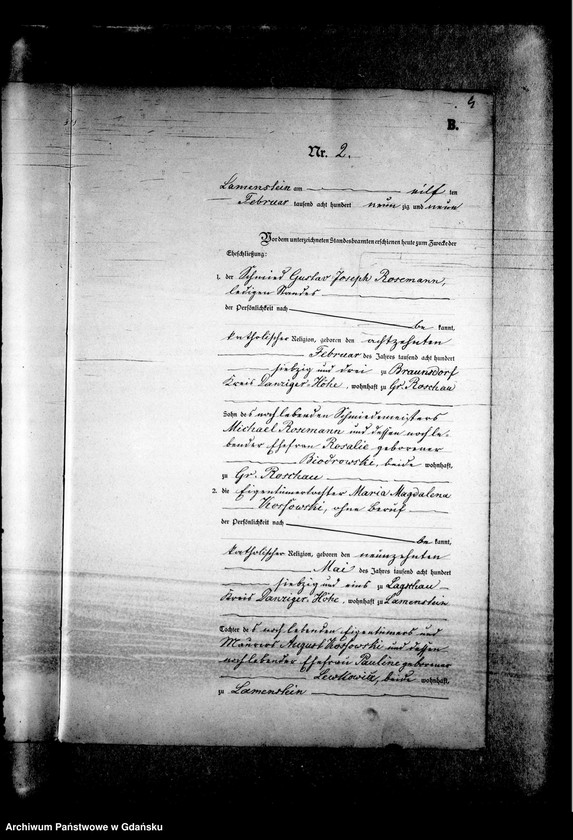 4
B.
Nr. 2.
Lamenstein am eilf ten
Februar tausend acht hundert neun zig und neun
Vor dem unterzeichneten Standesbeamten erschienen heute zum Zwecke der
Eheschließung:
1. der Schmied Gustav Joseph Rosemann,
ledigen Standes
der Persönlichkeit nach
be kannt,
katholischer Religion, geboren den achtzehnten
Februar des Jahres tausend acht hundert
siebzig und drei zu Braunsdorf
Kreis Danziger-Höhe, wohnhaft zu Gr. Roschau
Sohn des noch lebenden Schmiedemeisters
Michael Rosemann und dessen nochle-
bender Ehefrau Rosalie geborener
Biodrowski, beide wohnhaft
zu Gr. Roschau
2. die Eigentümertochter Maria Magdalena
Kossowski, ohne Beruf
der Persönlichkeit nach
be kannt,
katholischer Religion, geboren den neunzehnten
Mai des Jahres tausend acht hundert
siebzig und eins zu Lagschau
Kreis Danziger-Höhe, wohnhaft zu Lamenstein
Tochter des noch lebenden Eigentümers und
Maurers August Kossowski und dessen
noch lebender Ehefrau Pauline geborener
Lewkowitz, beide wohnhaft
zu Lamenstein
Archiwum Państwowe w Gdańsku